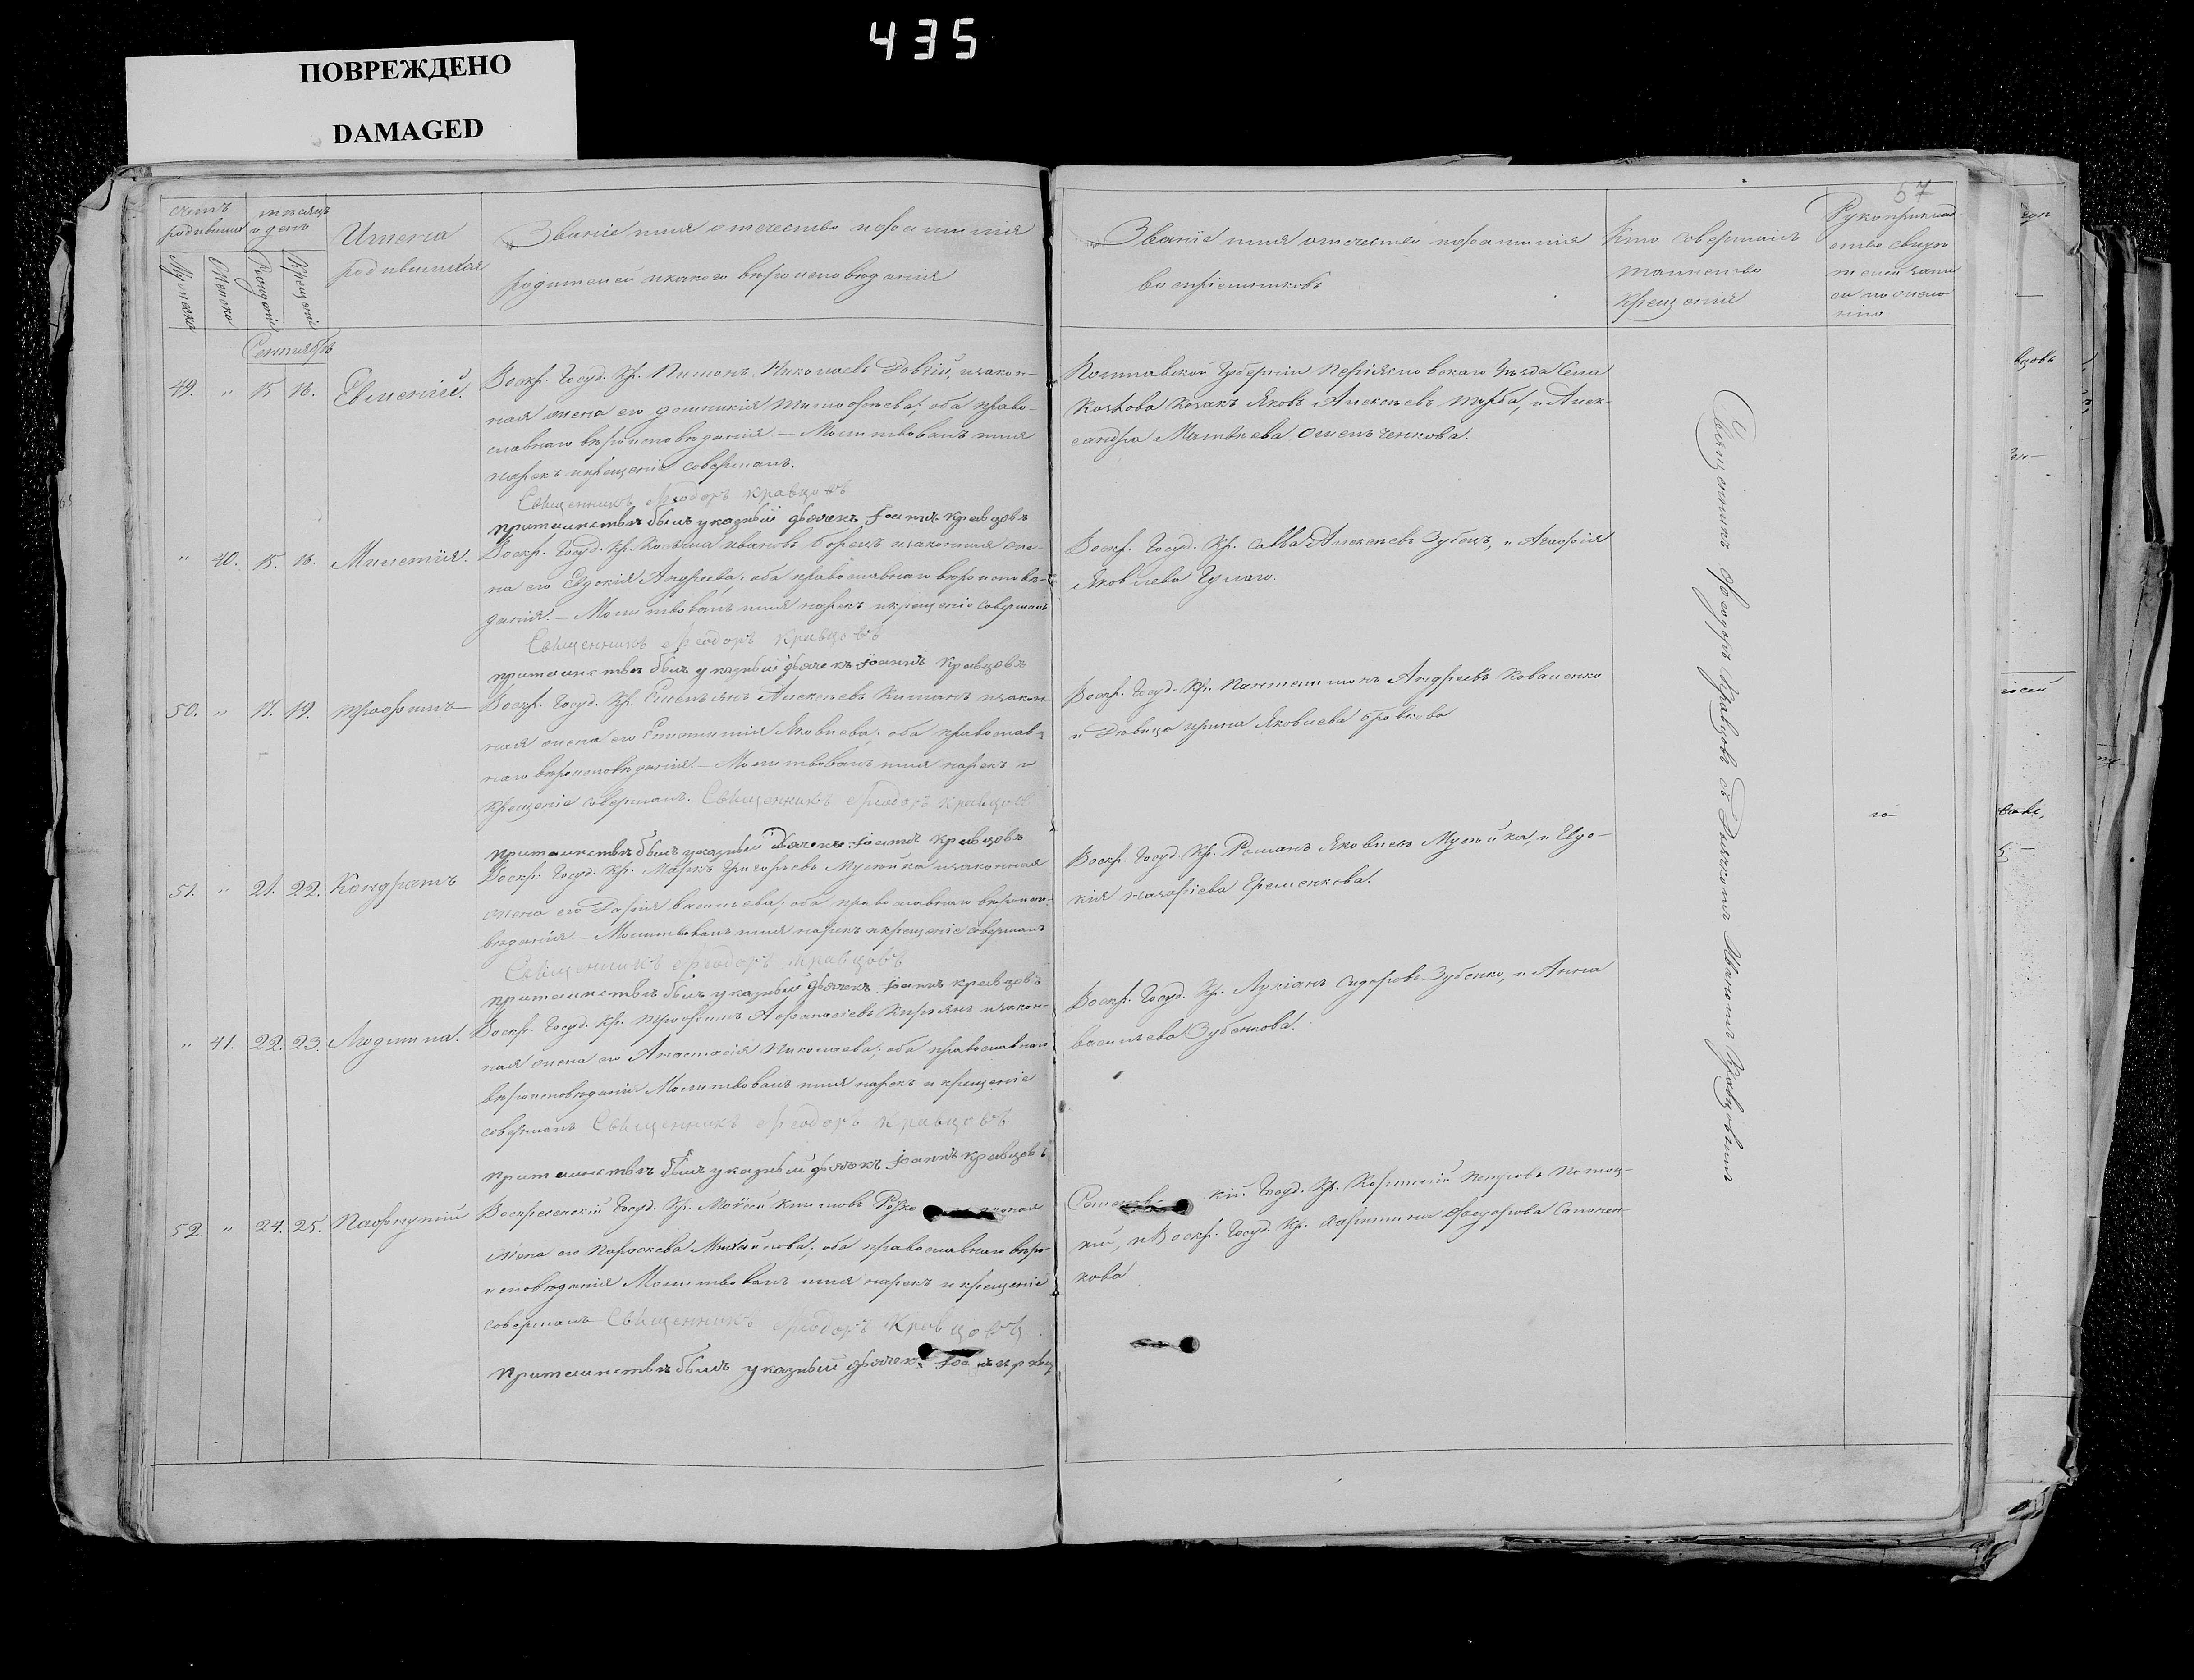 435
ПОВРЕЖДЕНО
DAMAGED
57
счетъ родившихся
мѣсяцъ и день
Имена родившихся
Званіе имя отечество и фамилія
родителей и какого вѣроисповѣданія
Мужеска
Женска
Рожденія
Крещенія
Званіе имя отечество и фамилія
воспріемниковъ
Кто совершалъ
таинство
крещенія
Рукоприклад-
Сентябрь
49. " 15 16. Евменій.
Воскр. Госуд. Кр. Пименъ Николаевъ Довгій, и закон-
ная жена его Домникія Тимофѣева; оба право-
славнаго вѣроисповѣданія. — Молитвовалъ имя
нарекъ и крещеніе совершалъ.
Священникъ Ѳеодоръ Кравцовъ
при таинствѣ былъ указный дьячекъ Іоаннъ Кравцовъ
Полтавской Губерніи Переясловскаго Уѣзда Села
Козакъ Яковъ Алексѣевъ и Алек-
сандра Матвѣева
" 40. 15. 16. Милетія.
Воскр. Госуд. Кр. Косьма Ивановъ Борецъ и законная же-
на его Евдокія Андреева; оба православнаго вѣроисповѣ-
данія. — Молитвовалъ имя нарекъ и крещеніе совершалъ
Священникъ Ѳеодоръ Кравцовъ
при таинствѣ былъ указный дьячекъ Іоаннъ Кравцовъ
Воскр. Госуд. Кр. Савва Алексѣевъ Зубецъ, и Агафія
Яковлева
50. " 17. 19. Трофимъ
Воскр. Госуд. Кр. Емельянъ Алексѣевъ и закон-
ная жена его Епистимія Яковлева; оба православ-
наго вѣроисповѣданія. — Молитвовалъ имя нарекъ и
крещеніе совершалъ. Священникъ Ѳеодоръ Кравцовъ
при таинствѣ былъ указный дьячекъ Іоаннъ Кравцовъ
Воскр. Госуд. Кр. Пантелимонъ Андреевъ Коваленко
и Дѣвица Ирина Яковлева Бровкова
51. " 21. 22. Кондратъ
Воскр. Госуд. Кр. Маркъ Григорьевъ Мусійка и законная
жена его Дарія Васильева; оба православнаго вѣроиспо-
вѣданія. — Молитвовалъ имя нарекъ и крещеніе совершалъ
Священникъ Ѳеодоръ Кравцовъ
при таинствѣ былъ указный дьячекъ Іоаннъ Кравцовъ
Воскр. Госуд. Кр. Романъ Яковлевъ Мусійка, и Евдо-
кія Назаріева Еременкова.
" 41. 22. 23. Людмила.
Воскр. Госуд. Кр. Трофимъ Афанасіевъ Кирьянъ и закон-
ная жена его Анастасія Николаева; оба православнаго
вѣроисповѣданія Молитвовалъ имя нарекъ и крещеніе
совершалъ Священникъ Ѳеодоръ Кравцовъ
при таинствѣ былъ указный дьячекъ Іоаннъ Кравцовъ
Воскр. Госуд. Кр. Лукіанъ Сидоровъ Зубенко, и Анна
Васильева Зубенкова.
52. " 24. 25. Пафнутій
Воскресенскій Госуд. Кр. Моѵсей Климовъ
жена его Параскева Михайлова; оба православнаго вѣро-
исповѣданія Молитвовалъ имя нарекъ и крещеніе
совершалъ Священникъ Ѳеодоръ Кравцовъ
при таинствѣ былъ указный дьячекъ
кій Госуд. Кр. Корнилій Петровъ Потоц-
кій, и Воскр. Госуд. Кр. Ѳеодорова
кова
Священникъ Ѳеодоръ Кравцовъ съ Дьячкомъ Иваномъ Кравцовымъ